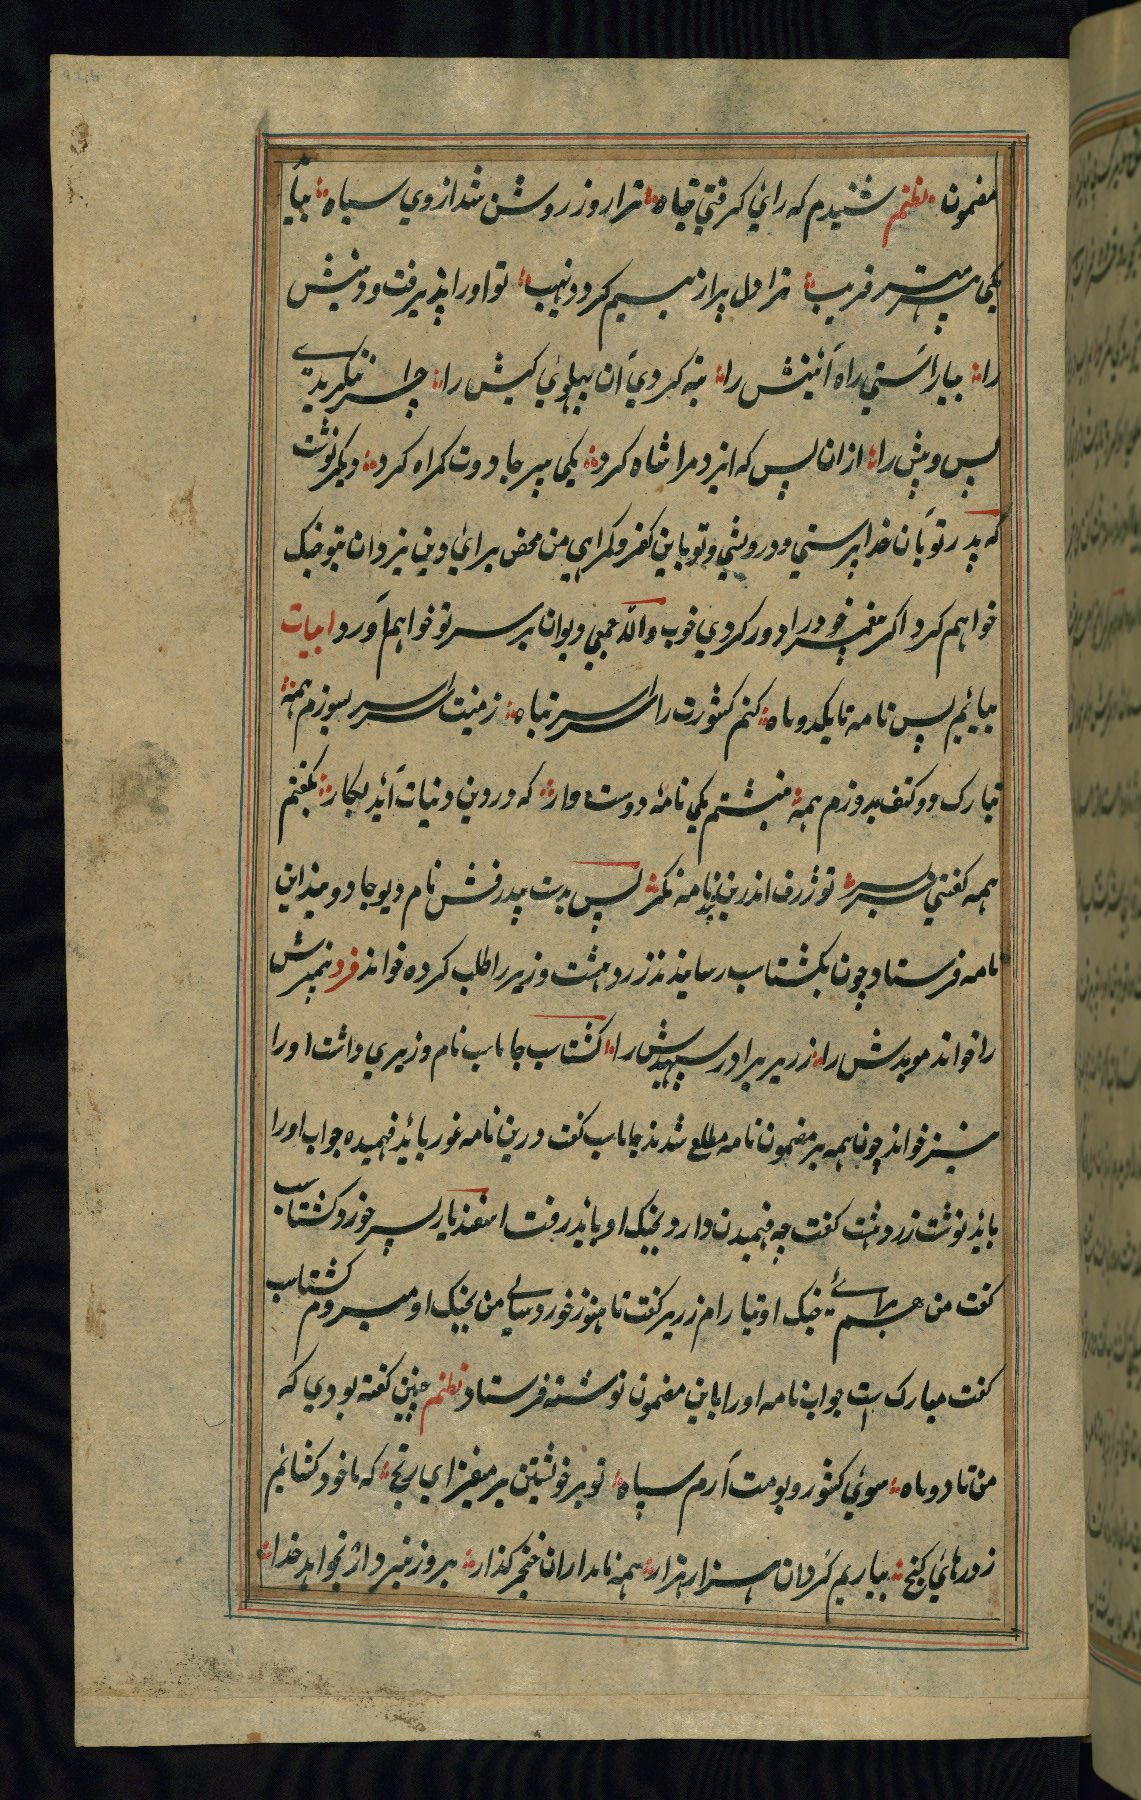 مضمون نظم شنیدم که راهی گرفتی تباه ترا روز روشن شد از وی سیاه بیامد
یکی پیر مهتر فریب ترا دل پر از بیم کرد و نهیب تو او را پذیرفتی و دینش
را بیاراستی راه آئینش را تبه کردی آن پهلوی کیش را چرا ننگریدی
پس و پیش را ازان پس که ایزد مرا شاه کرد یکی پیر جادوت گمراه کرد دیگر نوشت
که پدر تو بآن خداپرستی و درویشی و تو باین کفر و گمراهی من محض برای دین یزدان بتو جنک
خواهم کرد اگر پیغمبر خود را دور کردی خوب والله جمعی دیوان بر سر تو خواهم آورد ابیات
بیائیم پس نامه تا یکدو ماه کنم کشورت را سراسر تباه زمینت سراسر بسوزم همه
تبارک و کتف بدوزم همه نبشتم یکی نامه دوست وار که در دین و دنیات آید بکار بگفتم
همه گفتنی سربسر تو ژرف اندرین نامه نکر پس بدست بیدرفش نام دیو جادو این
نامه فرستاد چون بگشتاسب رسانیدند زردهشت وزیر را طلب کرده خواند فرد پیمبرش
را خواند موبدش را زریر برادر سپهبدش را کشتاسب جاماسب نام وزیری داشت او را
نیز خواند چون همه بر مضمون نامه مطلع شدند جاماسب گفت درین نامه غور باید فهمیده جواب او را
باید نوشت زردهشت گفت چه فهمیدن دارد بجنک او باید رفت اسفندیار پسر خورد کشتاسب
گفت من همراهی جنک او تیارام زریر گفت تا هنوز خوردسالی من بجنک او میروم کشتاسب
گفت مبارک است جواب نامه او را باین مضمون نوشته فرستاد نظم چنین گفته بودی که
من تا دو ماه سوی کشور و بومت آرم سپاه تو بر خویشتن بر میفزای رنج که ما خود کشائیم
زورهای کنج بیاریم گردان هزاران هزار همه نامداران خنجر گذار بروز نبرد ار بخواهد خدا